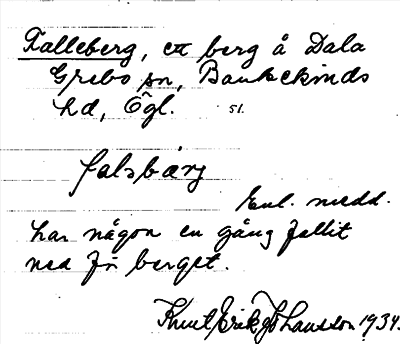 Falleberg, ett berg å Dala
Grebo sn, Bankekinds
hd, Ögl. 51.
falsbärg
Enl. medd.
har någon en gång fallit
ned för berget.
Knut Erik Johansson 1934.